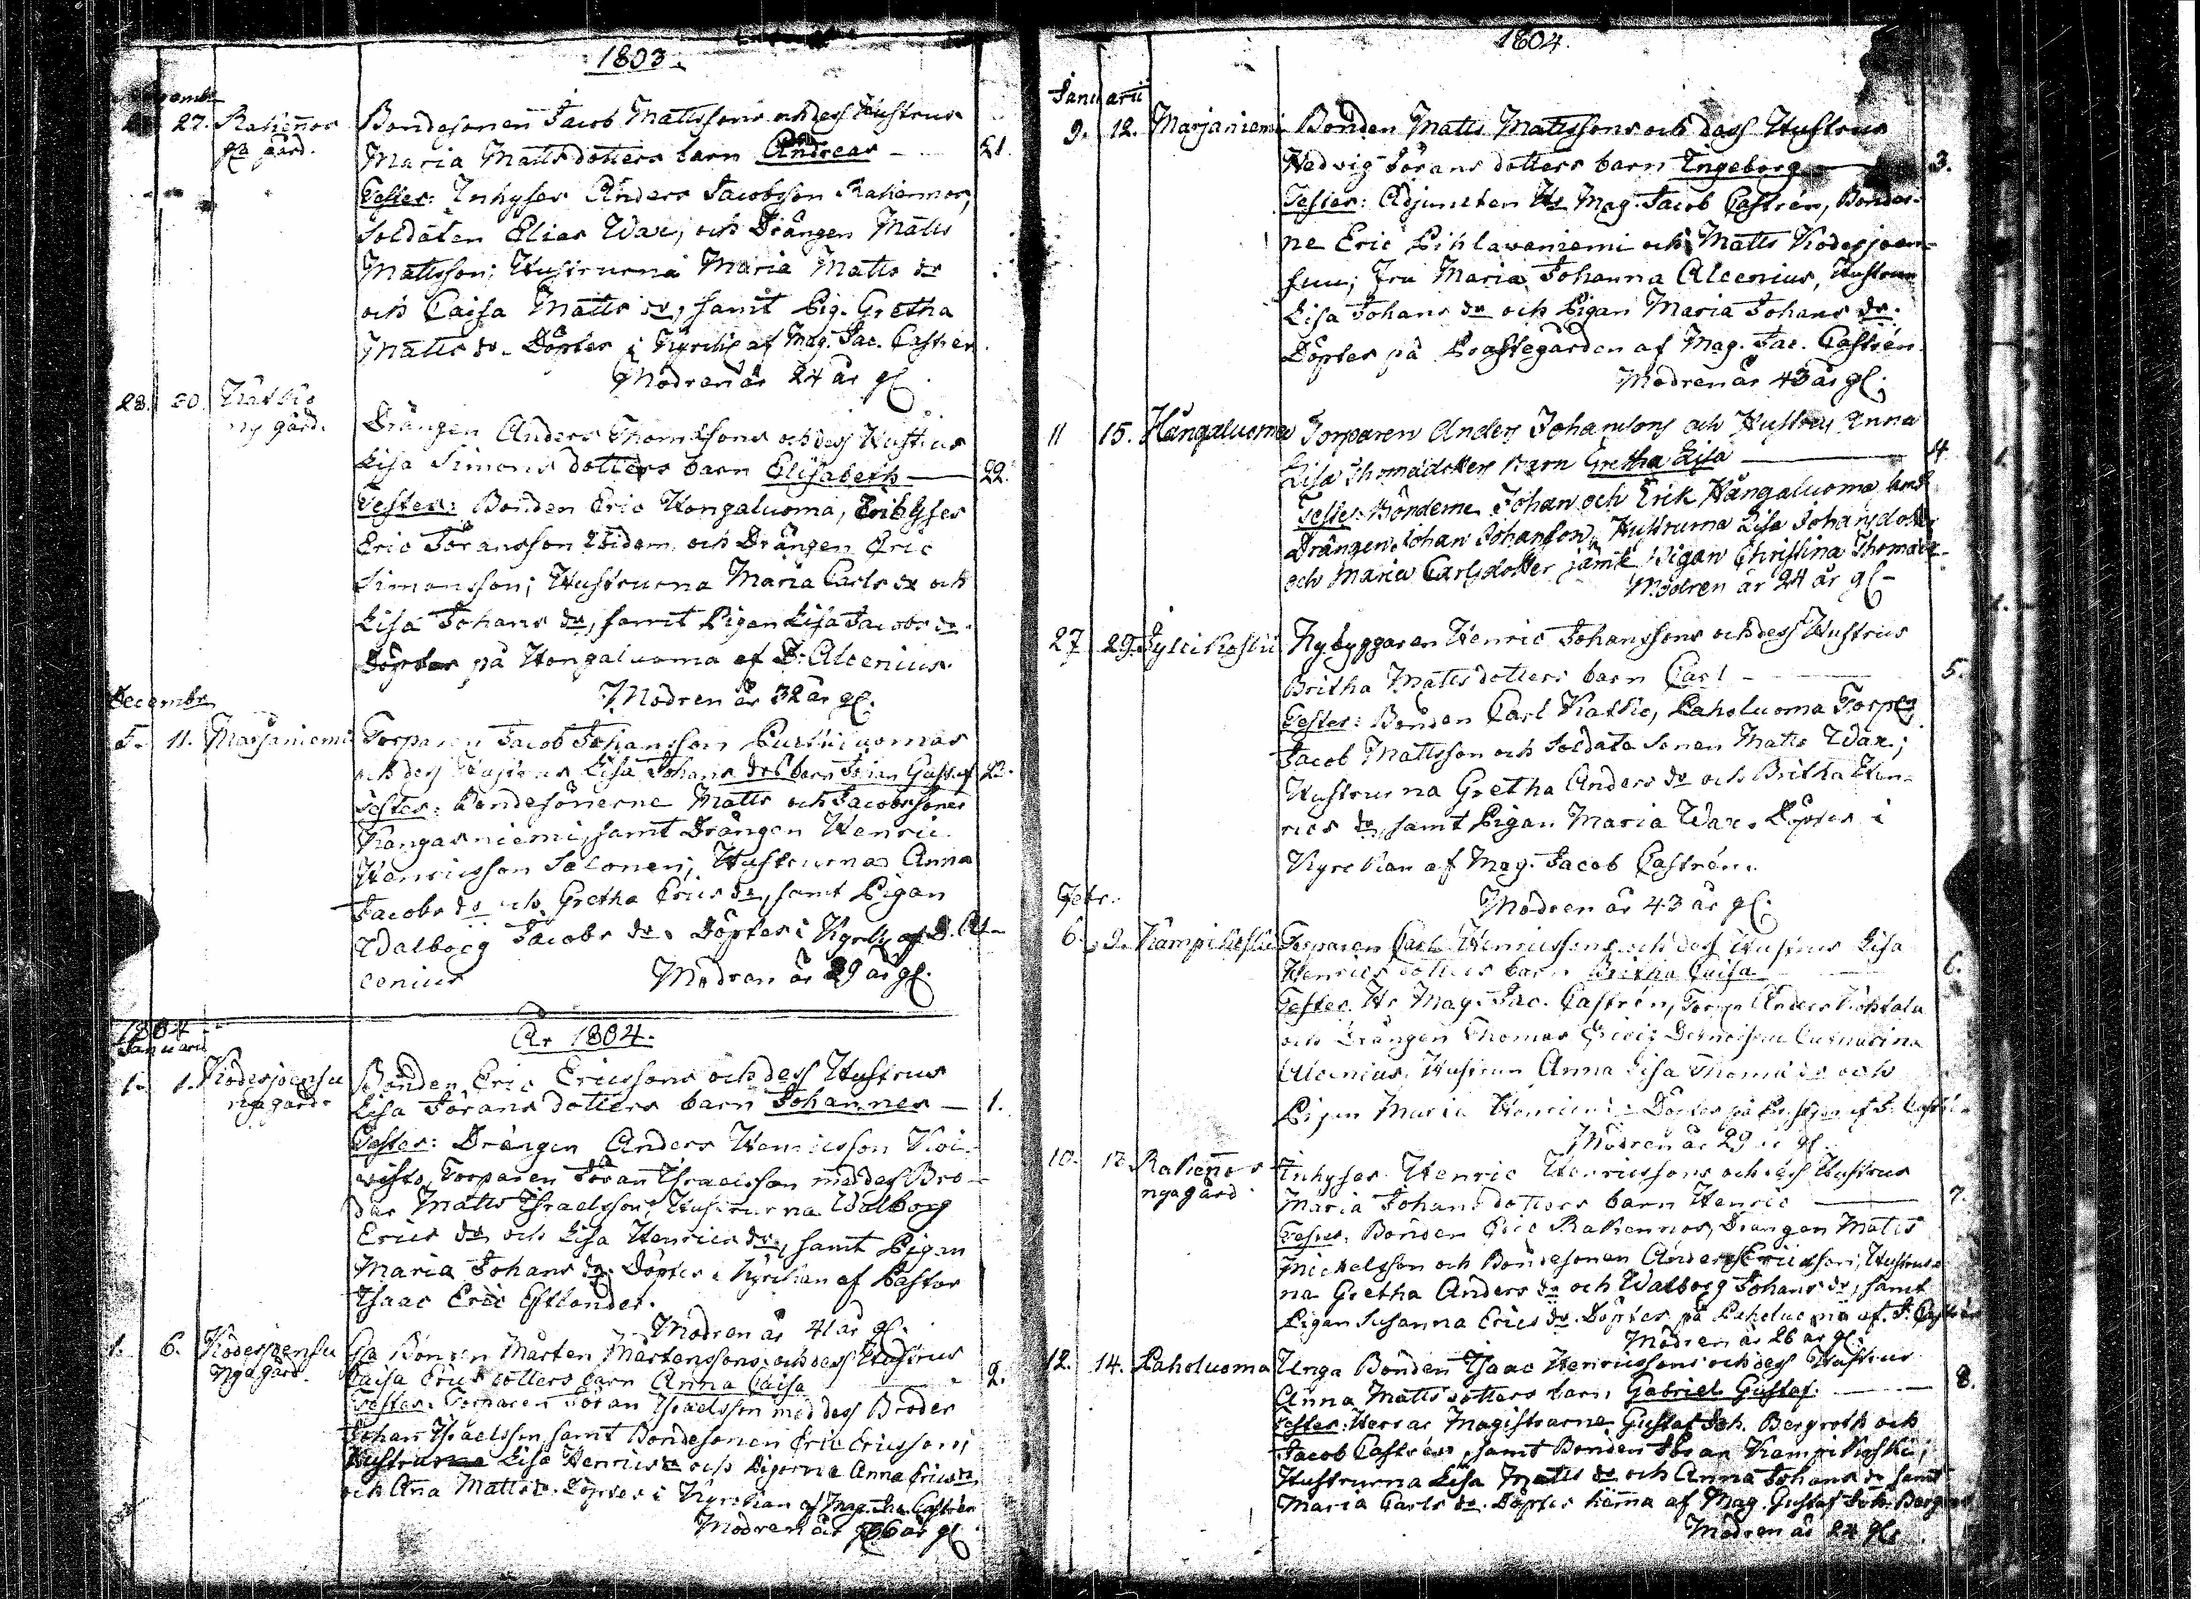 1803.
27. Rahennos Bondesonen Jacob Mattssons och dess Hustrus
gård. Maria Matts dotters barn Andreas — 21.
Testes: Inhyses Anders Jacobsson Rahennos,
Soldaten Elias Wax, och Drängen Matts
Mattsson; Hustrurna Maria Matts dr
och Caisa Matts dr, samt Pig. Gretha
Matts dr. Döptes i Kyrck. af Mag. Jac. Castrén
Modren är 24 år gl.
28. 30 Kathio
ny gård. Drängen Anders Thomæsons och dess Hustrus
Lisa Simons dotters barn Elisabeth — 22.
Testes: Bonden Eric Hongaluoma,
Eric Göransson ibidem, och Drängen Eric
Simonsson; Hustrurna Maria Carls dr och
Lisa Johans dr, samt Pigan Lisa Jacobs dr.
Döptes på Hongaluoma af D. Alcenius.
Modren är 32 år gl.
Decembr
5. 11. Marjaniemi Torparen Jacob Johansson
och dess Hustrus Lisa Johans dr barn Johan Gustaf
Testes: Bondesönerne Matts och Jacobssöner
Kangasniemi, samt Drängen Henric
Henricsson Salonen; Hustrurna Anna
Jacobs dr och Gretha Erics dr, samt Pigan
Walborg Jacobs dr. Döptes i Kyrck. af D. Al-
cenius Modren är 29 år gl.
1804 År 1804.
Januarii
1. 1. Kodesjoensu Bonden Eric Ericssons och dess Hustrus
nya gård. Lisa Görans dotters barn Johannes — 1.
Testes: Drängen Anders Henricsson Koi-
visto, Torparen Göran Israelsson med dess Bro-
der Matts Israelsson; Hustrurna Walborg
Erics dr och Lisa Henrics dr, samt Pigan
Maria Johans dr. Döptes i Kyrckan af Pastor
Isaac Eric Estlander.
Modren är 41 år gl.
1. 6. Kodesjoensu Bonden Mårten Mårtenssons och dess Hustrus
Nya gård. Caisa Erics dotters barn Anna Caisa — 2.
Testes: Torparen Göran Israelsson med dess Broder
Johan Israelsson, samt Bondesonen Eric Ericsson;
Hustrurna Lisa Henrics dr och Pigorna Anna Erics dr
och Ana Matts dr. Döptes i Kyrckan af Mag. Jac. Castrén
Modren är 26 år gl.
1804.
Januarii
9. 12. Marjaniemi Bonden Matts Mattssons och dess Hustrus
Hedvig Görans dotters barn Ingeborg — 3.
Testes: Adjuncten Hr Mag. Jacob Castrén, Bönder-
ne Eric Pihlavaniemi och Matts Kodesjoen-
suu; Fru Maria Johanna Alcenius, Hustrun
Lisa Johans dr och Pigan Maria Johans dr.
Döptes på Prästegården af Mag. Jac. Castrén.
Modren är 43 år gl.
11 15. Hångaluoma Torparen Anders Johansons och Hustrus Anna
Lisa Thomædotters barn Gretha Lisa — 4
Testes: Bönderne Johan och Erik Hångaluoma,
Drängen Johan Johanson, Hustrurna Lisa Johansdotter
och Maria Carlsdotter jämte Pigan Christina Thomædr.
Modren är 24 år gl.
27 29. Jylcikoskii Nybyggaren Henric Johanssons och dess Hustrus
Britha Mattsdotters barn Carl — 5.
Testes: Bonden Carl Kathio, Paholuoma Torp.
Jacob Mattsson och Soldate Sonen Matts Wax;
Hustrurna Gretha Anders dr och Britha Hen-
rics dr, samt Pigan Maria Wax. Döptes i
Kyrckan af Mag. Jacob Castrén.
Modren är 43 år gl.
Febr.
6. 9. Kampikoski Torparen Carl Henricssons och dess Hustrus Lisa
Henrics dotters barn Britha Caisa — 6.
Testes: Hr Mag. Jac. Castrén, Torp. Anders
och Drängen Thomas Catharina
Alcenius, Hustrun Anna Lisa Thomæ dr och
Pigan Maria Henrics dr. Döptes på
Modren är 29 år gl.
10. 12. Rahennos Inhyses Henric Henricssons och dess Hustrus
nya gård Maria Johans dotters barn Henric — 7.
Testes: Bonden Eric Rahennos, Drängen Matts
Michelsson och Bondesonen Anders Ericsson; Hustrur-
na Gretha Anders dr och Walborg Johans dr, samt
Pigan Susanna Erics dr. Döptes på Paholuoma af J. Castrén
Modren är 26 år gl.
12. 14. Paholuoma Unga Bonden Isaac Henricssons och dess Hustrus
Anna Matts dotters barn Gabriel Gustaf. — 8.
Testes: Herrar Magistrarne Gustaf Joh. Bergroth och
Jacob Castrén, samt Bonden Göran Kampikoski;
Hustrurna Lisa Matts dr och Anna Johans dr samt
Maria Carls dr. Döptes hemma af Mag. Gustaf Joh. Bergroth
Modren är 24 gl.